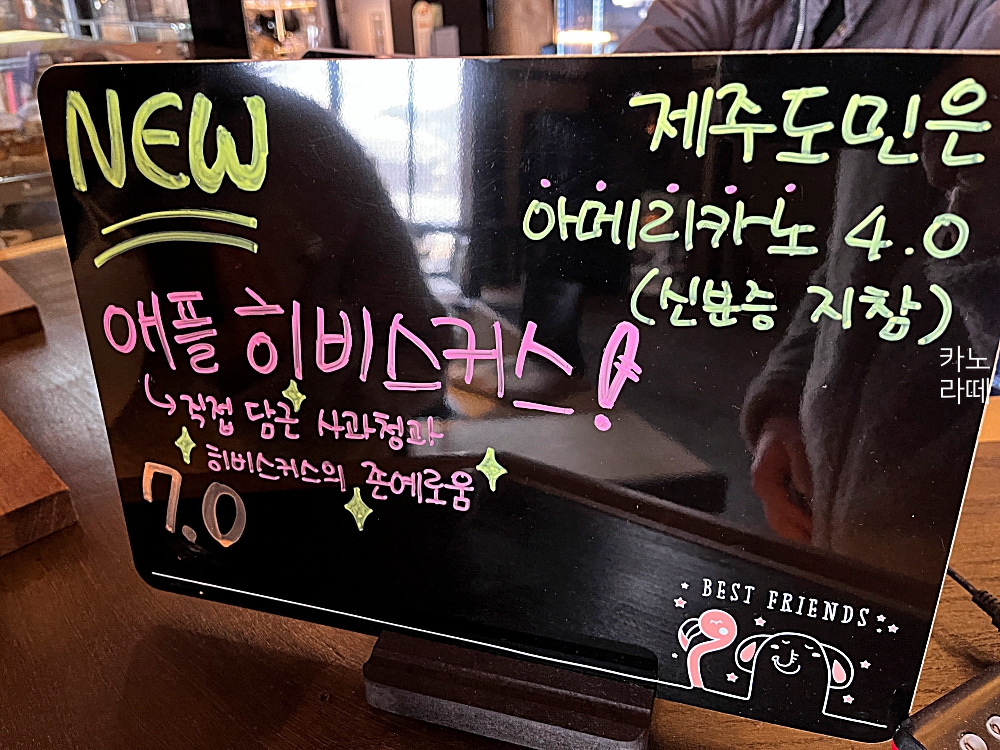 NEW
애플 히비스커스!
직접 담근 사과청과
히비스커스의 존예로움
7.0
제주도민은
아메리카노 4.0
(신분증 지참)
카노
라떼
BEST FRIENDS